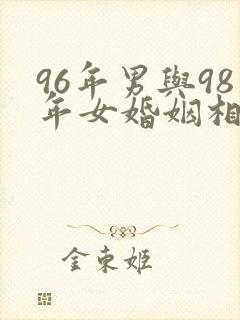 96年男與98
年女婚姻相
金東姬